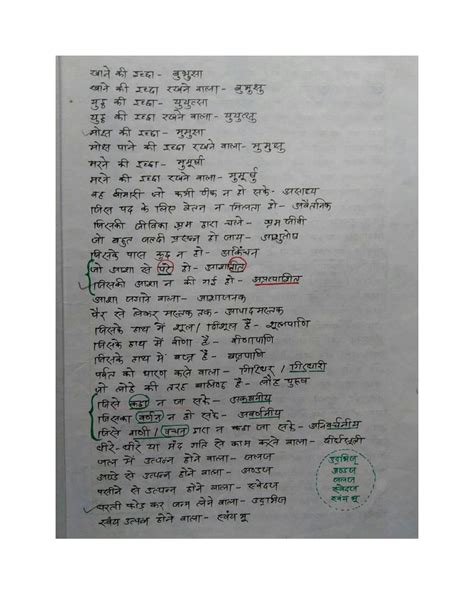 खाने की इच्छा - बुभुक्षा
खाने की इच्छा रखने वाला - बुभुक्षु
युद्ध की इच्छा - युयुत्सा
युद्ध की इच्छा रखने वाला - युयुत्सु
मोक्ष की इच्छा - मुमुक्षा
मोक्ष पाने की इच्छा रखने वाला - मुमुक्षु
मरने की इच्छा - मुमूर्षा
मरने की इच्छा रखने वाला - मुमूर्षु
वह बीमारी जो कभी ठीक न हो सके - असाध्य
जिस पद के लिए वेतन न मिलता हो - अवैतनिक
जिसकी जीविका श्रम द्वारा चले - श्रम जीवी
जो बहुत जल्दी प्रसन्न हो जाय - आशुतोष
जिसके पास कुछ न हो - अकिंचन
जो आशा से परे हो - आशातीत
जिसकी आशा न की गई हो - अप्रत्याशित
आशा जगाने वाला - आशाजनक
पैर से लेकर मस्तक तक - आपादमस्तक
जिसके हाथ में शूल / त्रिशूल है - शूलपाणि
जिसके हाथ में वीणा है - वीणापाणि
जिसके हाथ में वज्र है - वज्रपाणि
पर्वत को धारण करने वाला - गिरिधर / गिरधारी
जो लोहे की तरह बलिष्ठ है - लौह पुरुष
जिसे कहा न जा सके - अकथनीय
जिसका वर्णन न हो सके - अवर्णनीय
जिसे वाणी / वचन द्वारा न कहा जा सके - अनिर्वचनीय
धीरे-धीरे या मंद गति से काम करने वाला - दीर्घसूत्री
जल में उत्पन्न होने वाला - जलज
अण्डे से उत्पन्न होने वाला - अण्डज
पसीने से उत्पन्न होने वाला - स्वेदज
धरती फोड़ कर जन्म लेने वाला - उद्भिज
स्वयं उत्पन्न होने वाला - स्वयं भू
उद्भिज
अण्डज
जलज
स्वेदज
स्वयं भू